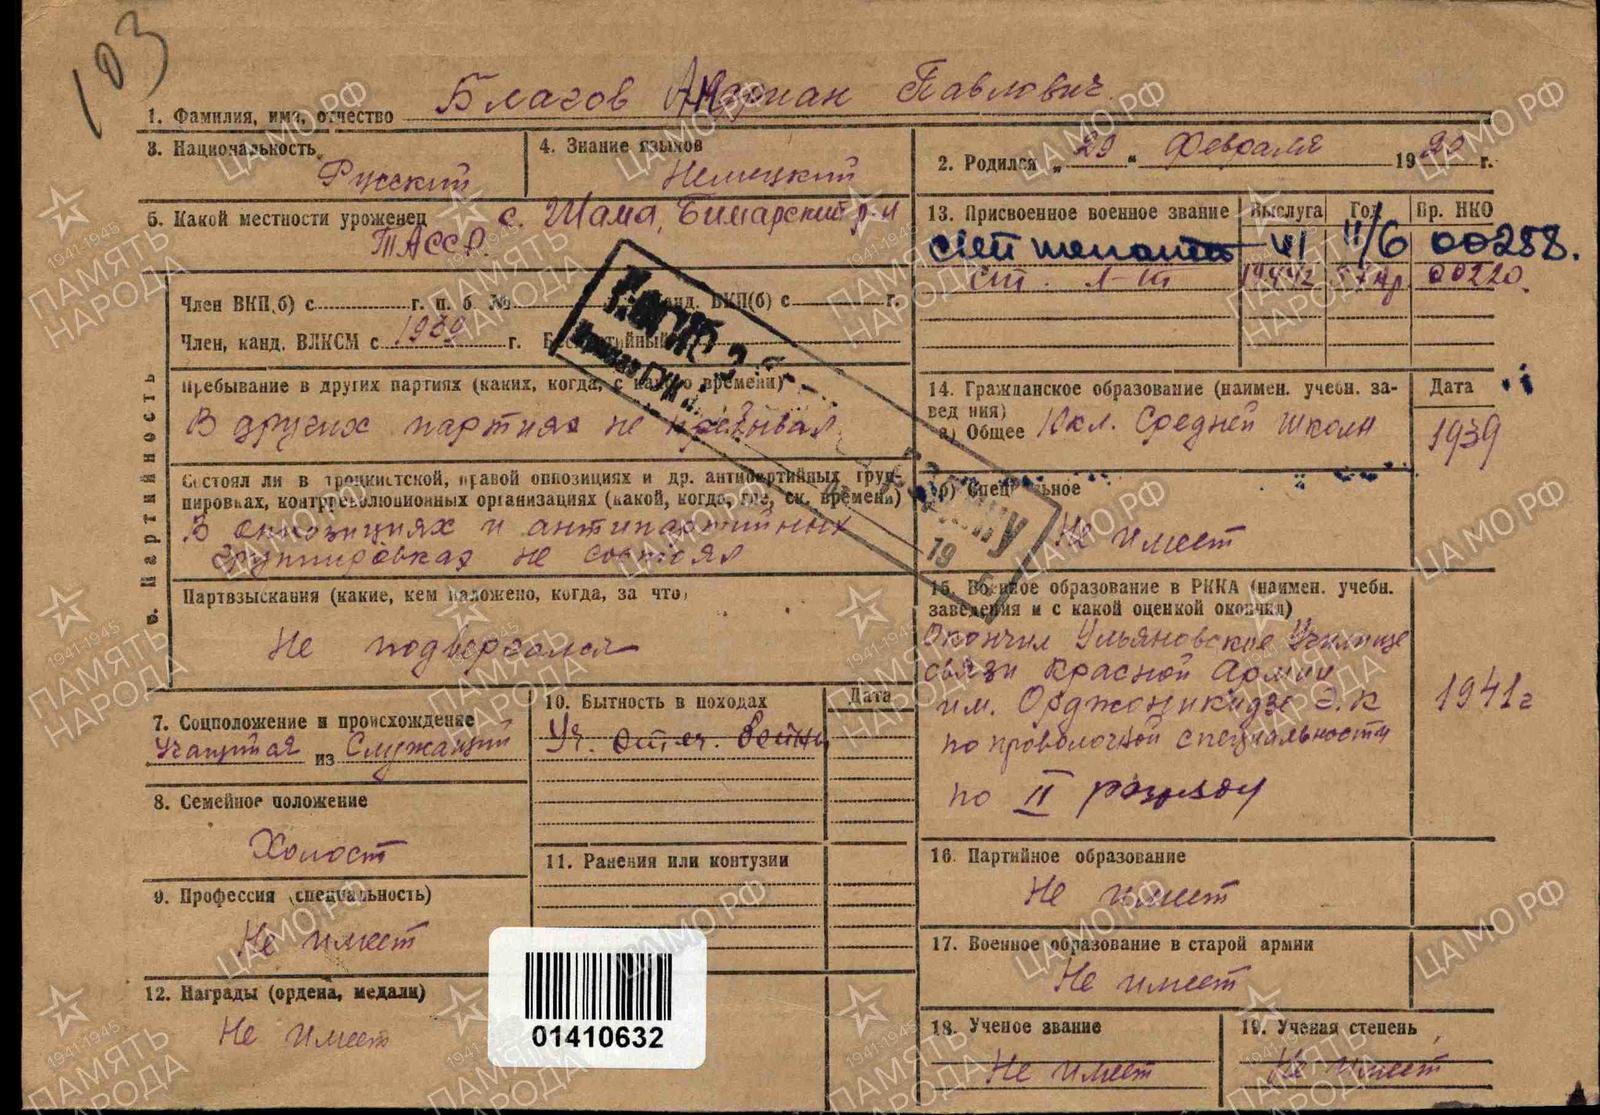 103
1. Фамилия, имя, отчество Благов Андриан Павлович
3. Национальность Русский
4. Знание языков Немецкий
2. Родился „29“ Февраля 1920 г.
5. Какой местности уроженец с. Шама, Билярский р-н
ТАССР.
13. Присвоенное военное звание Выслуга Год Пр. НКО
41 11/6 00258.
ст. л-т 00220.
Член ВКП(б) с г. п. б. № Канд. ВКП(б) с г.
Член, канд. ВЛКСМ с 1939 г. Беспартийный
6. Партийность
Пребывание в других партиях (каких, когда, с какого времени)
В других партиях не пребывал
Состоял ли в троцкистской, правой оппозициях и др. антипартийных груп-
пировках, контрреволюционных организациях (какой, когда, где, ск. времени)
В оппозициях и антипартийных
группировках не состоял
Партвзыскания (какие, кем наложено, когда, за что)
Не подвергался
14. Гражданское образование (наимен. учебн. за-
ведения) Дата
а) Общее 10 кл. Средней школы 1939
б) Специальное
Не имеет
15. Военное образование в РККА (наимен. учебн.
заведения и с какой оценкой окончил)
Окончил Ульяновское Училище
связи Красной Армии
им. Орджоникидзе Э.К 1941 г
по проволочной специальности
по II разряду
7. Соцположение и происхождение
Учащийся из Служащий
8. Семейное положение
Холост
9. Профессия (специальность)
Не имеет
10. Бытность в походах Дата
Уч. отеч. войны
11. Ранения или контузии
12. Награды (ордена, медали)
Не имеет
16. Партийное образование
Не имеет
17. Военное образование в старой армии
Не имеет
18. Ученое звание
Не имеет
19. Ученая степень
Не имеет
01410632
ЦАМО.РФ
1941-1945
ПАМЯТЬ
НАРОДА